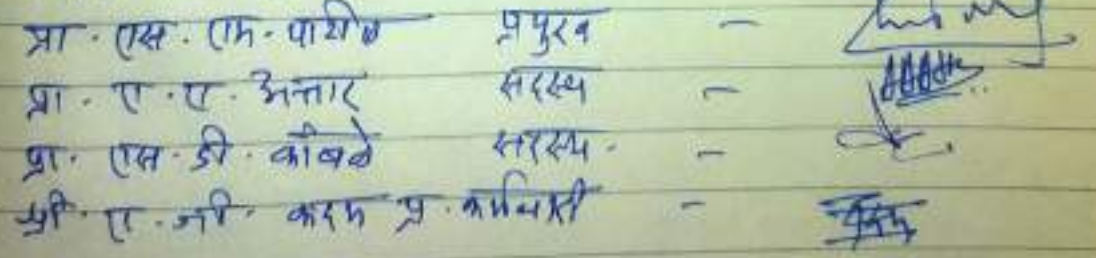 प्रा. एस. एम. पाटील प्रमुख -
प्रा. ए. ए. अत्तार सदस्य -
प्रा. एस. डी. कांबळे सदस्य. -
श्री. ए. जी. कदम प्र. कर्मचारी -